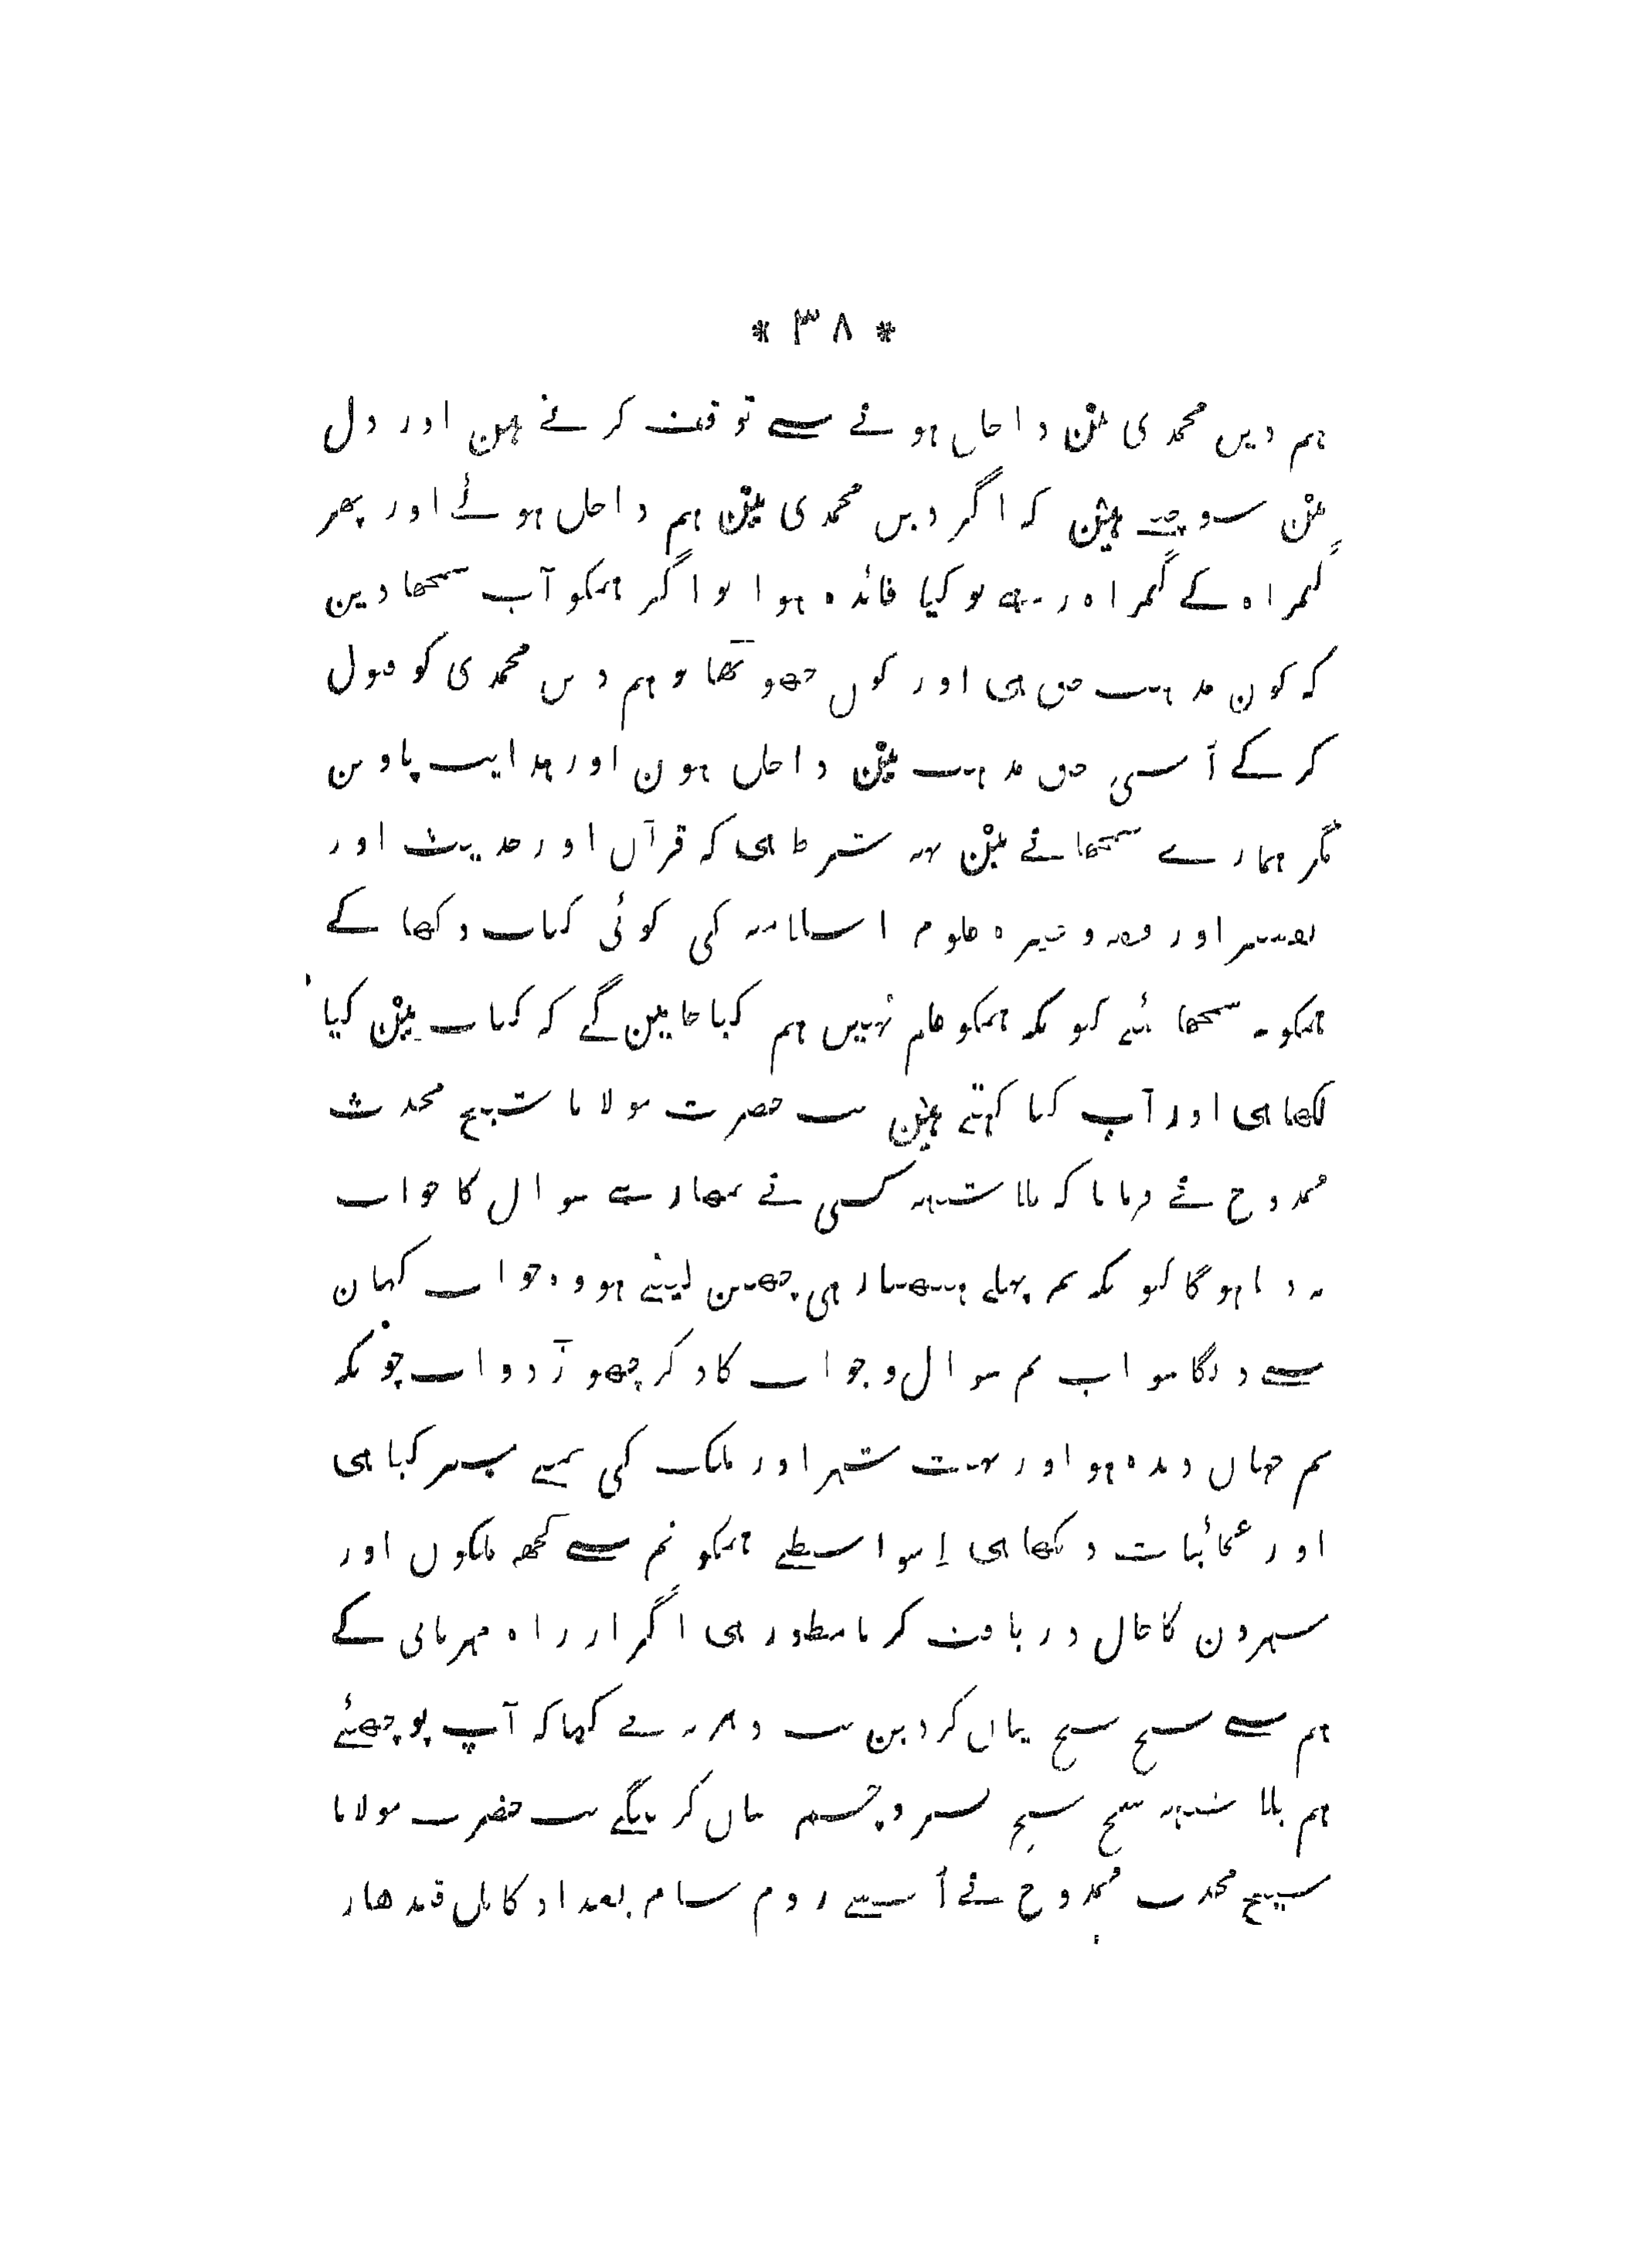 * ٣٨ *
ہم دین محمدی مین داخل ہونے سے توقف کرتے ہین اور دل
مین سوچتے ہین کہ اگر دین محمدی مین ہم داخل ہوئے اور پھر
گمراہ کے گمراہ رہے تو کیا فائدہ ہوا تو اگر ہمکو آپ سمجھا دین
کہ کون مذہب حق ہی اور کون جھوتھا تو ہم دین محمدی کو قبول
کرکے اُسی حق مذہب مین داخل ہون اور ہدایت پاوین
مگر ہمارے سمجھانے مین یہ شرط ہی کہ قرآن اور حدیث اور
تفسیر اور فقہ وغیرہ علوم اسلامیہ کی کوئی کتاب دکھا کے
ہمکو نہ سمجھائیے کیونکہ ہمکو علم نہیں ہم کیا جانین گے کہ کتاب مین کیا
لکھا ہی اور آپ کیا کہتے ہین تب حضرت مولانا شیخ محدث
ممدوح نے فرمایا کہ بلا شبہہ کسی نے تمھارے سوال کا جواب
نہ دیا ہوگا کیونکہ تم پہلے ہتھیار ہی چھین لیتے ہو وہ جواب کہان
سے دیگا سو اب تم سوال و جواب کا ذکر چھوڑ دو اب چونکہ
تم جہان دیدہ ہو اور بہت شہر اور ملک کی تمنے سیر کیا ہی
اور عجائبات دیکھا ہی اِسواسطے ہمکو تم سے کچھ ملکوں اور
شہرون کا حال دریافت کرنا منظور ہی اگر از راہ مہربانی کے
ہم سے سچ سچ بیان کردین تب دہریہ نے کہا کہ آپ پوچھئے
ہم بلا شبہہ سچ سچ بسر و چشم بیان کرینگے تب حضرت مولانا
شیخ محدث ممدوح نے اُسسے روم شام بغداد کابل قندھار